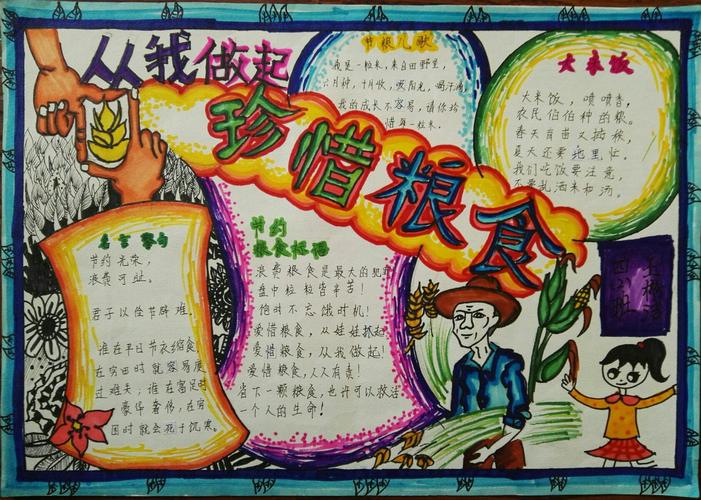 从我做起
珍惜粮食
节粮儿歌
我是一粒米,来自田野里,
六月种,十月收,吸阳光,喝汗滴
我的成长不容易,请你珍
惜每一粒米。
大米饭
大米饭,喷喷香,
农民伯伯种的粮。
春天育苗又插秧,
夏天还要地里忙。
我们吃饭要注意,
不要乱洒米和汤。
名言警句
节约光荣,
浪费可耻。
君子以俭节辟难.
谁在平日节衣缩食,
在穷困时就容易度
过难关;谁在富足时
豪华奢侈,在穷
困时就会死于饥寒。
节约
粮食标语
浪费粮食是最大的犯罪
盘中粒粒皆辛苦!
饱时不忘饿时饥!
爱惜粮食,从娃娃抓起
爱惜粮食,从我做起!
爱惜粮食,人人有责!
省下一颗粮食,也许可以救活
一个人的生命!
四八班